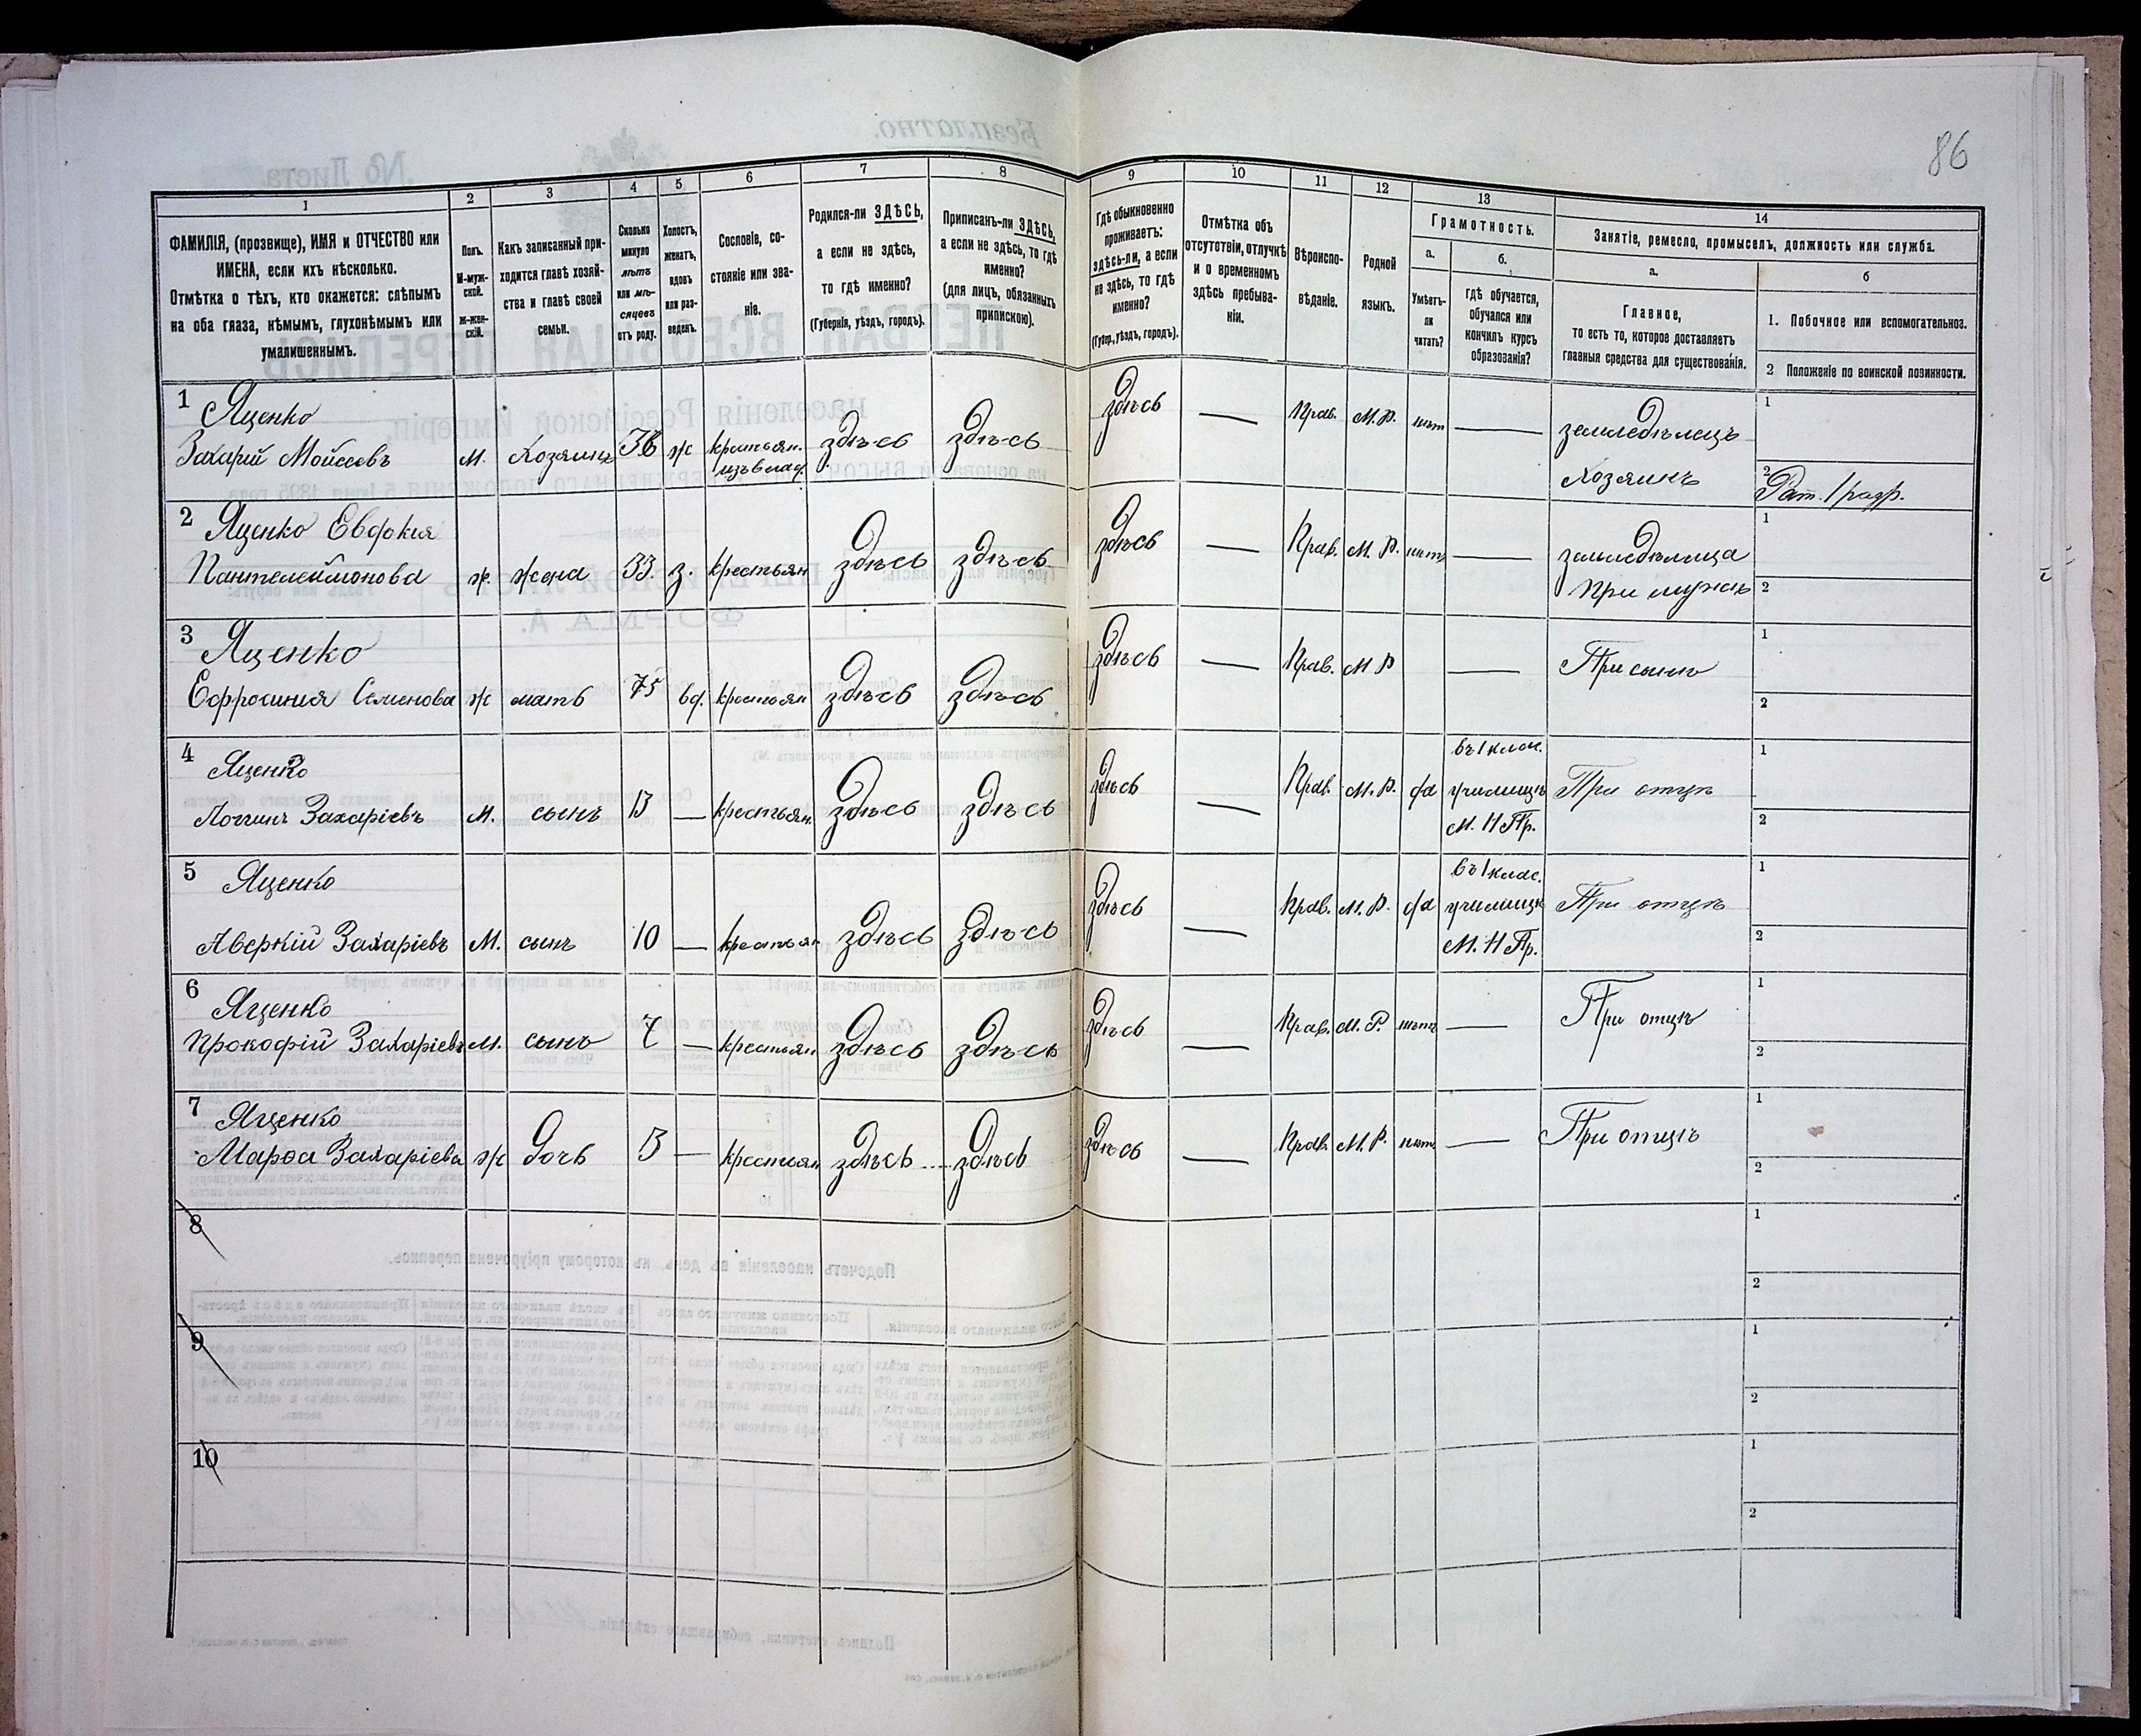 86
1
2
3
4
5
6
7
8
9
10
11
12
13
14
ФАМИЛІЯ, (прозвище), ИМЯ и ОТЧЕСТВО или
ИМЕНА, если ихъ нѣсколько.
Отмѣтка о тѣхъ, кто окажется: слѣпымъ
на оба глаза, нѣмымъ, глухонѣмымъ или
умалишеннымъ.
Полъ.
М-муж-
ской.
ж-жен-
скій.
Какъ записанный при-
ходится главѣ хозяй-
ства и главѣ своей
семьи.
Сколько
минуло
лѣтъ
или мѣ-
сяцевъ
отъ роду.
Холостъ,
женатъ,
вдовъ
или раз-
веденъ.
Сословіе, со-
стояніе или зва-
ніе.
Родился-ли ЗДѢСЬ,
а если не здѣсь,
то гдѣ именно?
(Губернія, уѣздъ, городъ).
Приписанъ-ли ЗДѢСЬ,
а если не здѣсь, то гдѣ
именно?
(для лицъ, обязанныхъ
припискою).
Гдѣ обыкновенно
проживаетъ:
здѣсь-ли, а если
не здѣсь, то гдѣ
именно?
(Губер., уѣздъ, городъ).
Отмѣтка объ
отсутствіи, отлучкѣ
и о временномъ
здѣсь пребыва-
ніи.
Вѣроиспо-
вѣданіе.
Родной
языкъ.
Грамотность.
а.
Умѣетъ-
ли
читать?
б.
гдѣ обучается,
обучался или
кончилъ курсъ
образованія?
Занятіе, ремесло, промыселъ, должность или служба.
а.
Главное,
то есть то, которое доставляетъ
главныя средства для существованія.
б
1. Побочное или вспомогательное.
2 Положеніе по воинской повинности.
1 Яценко
Захарій Мойсеевъ м. Хозяинъ 36 ж крестьян. здѣсь здѣсь здѣсь — Прав. М.Р. нѣтъ — земледѣлецъ 1
изъ влад.
Хозяинъ 2 Рат. 1 разр.
2 Яценко Евдокия
Пантелеймонова ж. жена 33. з. крестьян здѣсь здѣсь здѣсь — Прав. М. Р. нѣтъ — земледѣлица 1
при мужѣ 2
3 Яценко
Ефросиния Семенова ж мать 75 вд. крестьян здѣсь здѣсь здѣсь — Прав. М Р — При сынѣ 1
2
4 Яценко въ 1 клас.
Логгинъ Захаріевъ м. сынъ 13 — крестьян. здѣсь здѣсь здѣсь — Прав. М.Р. да училищѣ При отцѣ 1
М. Н Пр. 2
5 Яценко въ 1 клас.
Аверкій Захаріевъ М. сынъ 10 — крестьян здѣсь здѣсь здѣсь — Прав. М.Р. да училищѣ При отцѣ 1
М. Н Пр. 2
6 Яценко
Прокофій Захаріевъ м. сынъ 7 — крестьян здѣсь здѣсь здѣсь — Прав. М. Р. нѣтъ — При отцѣ 1
2
7 Яценко
Марѳа Захаріева ж дочь 3 — крестьян здѣсь здѣсь здѣсь — Прав. М.Р. нѣтъ — При отцѣ 1
2
8 1
2
9 1
2
10 1
2